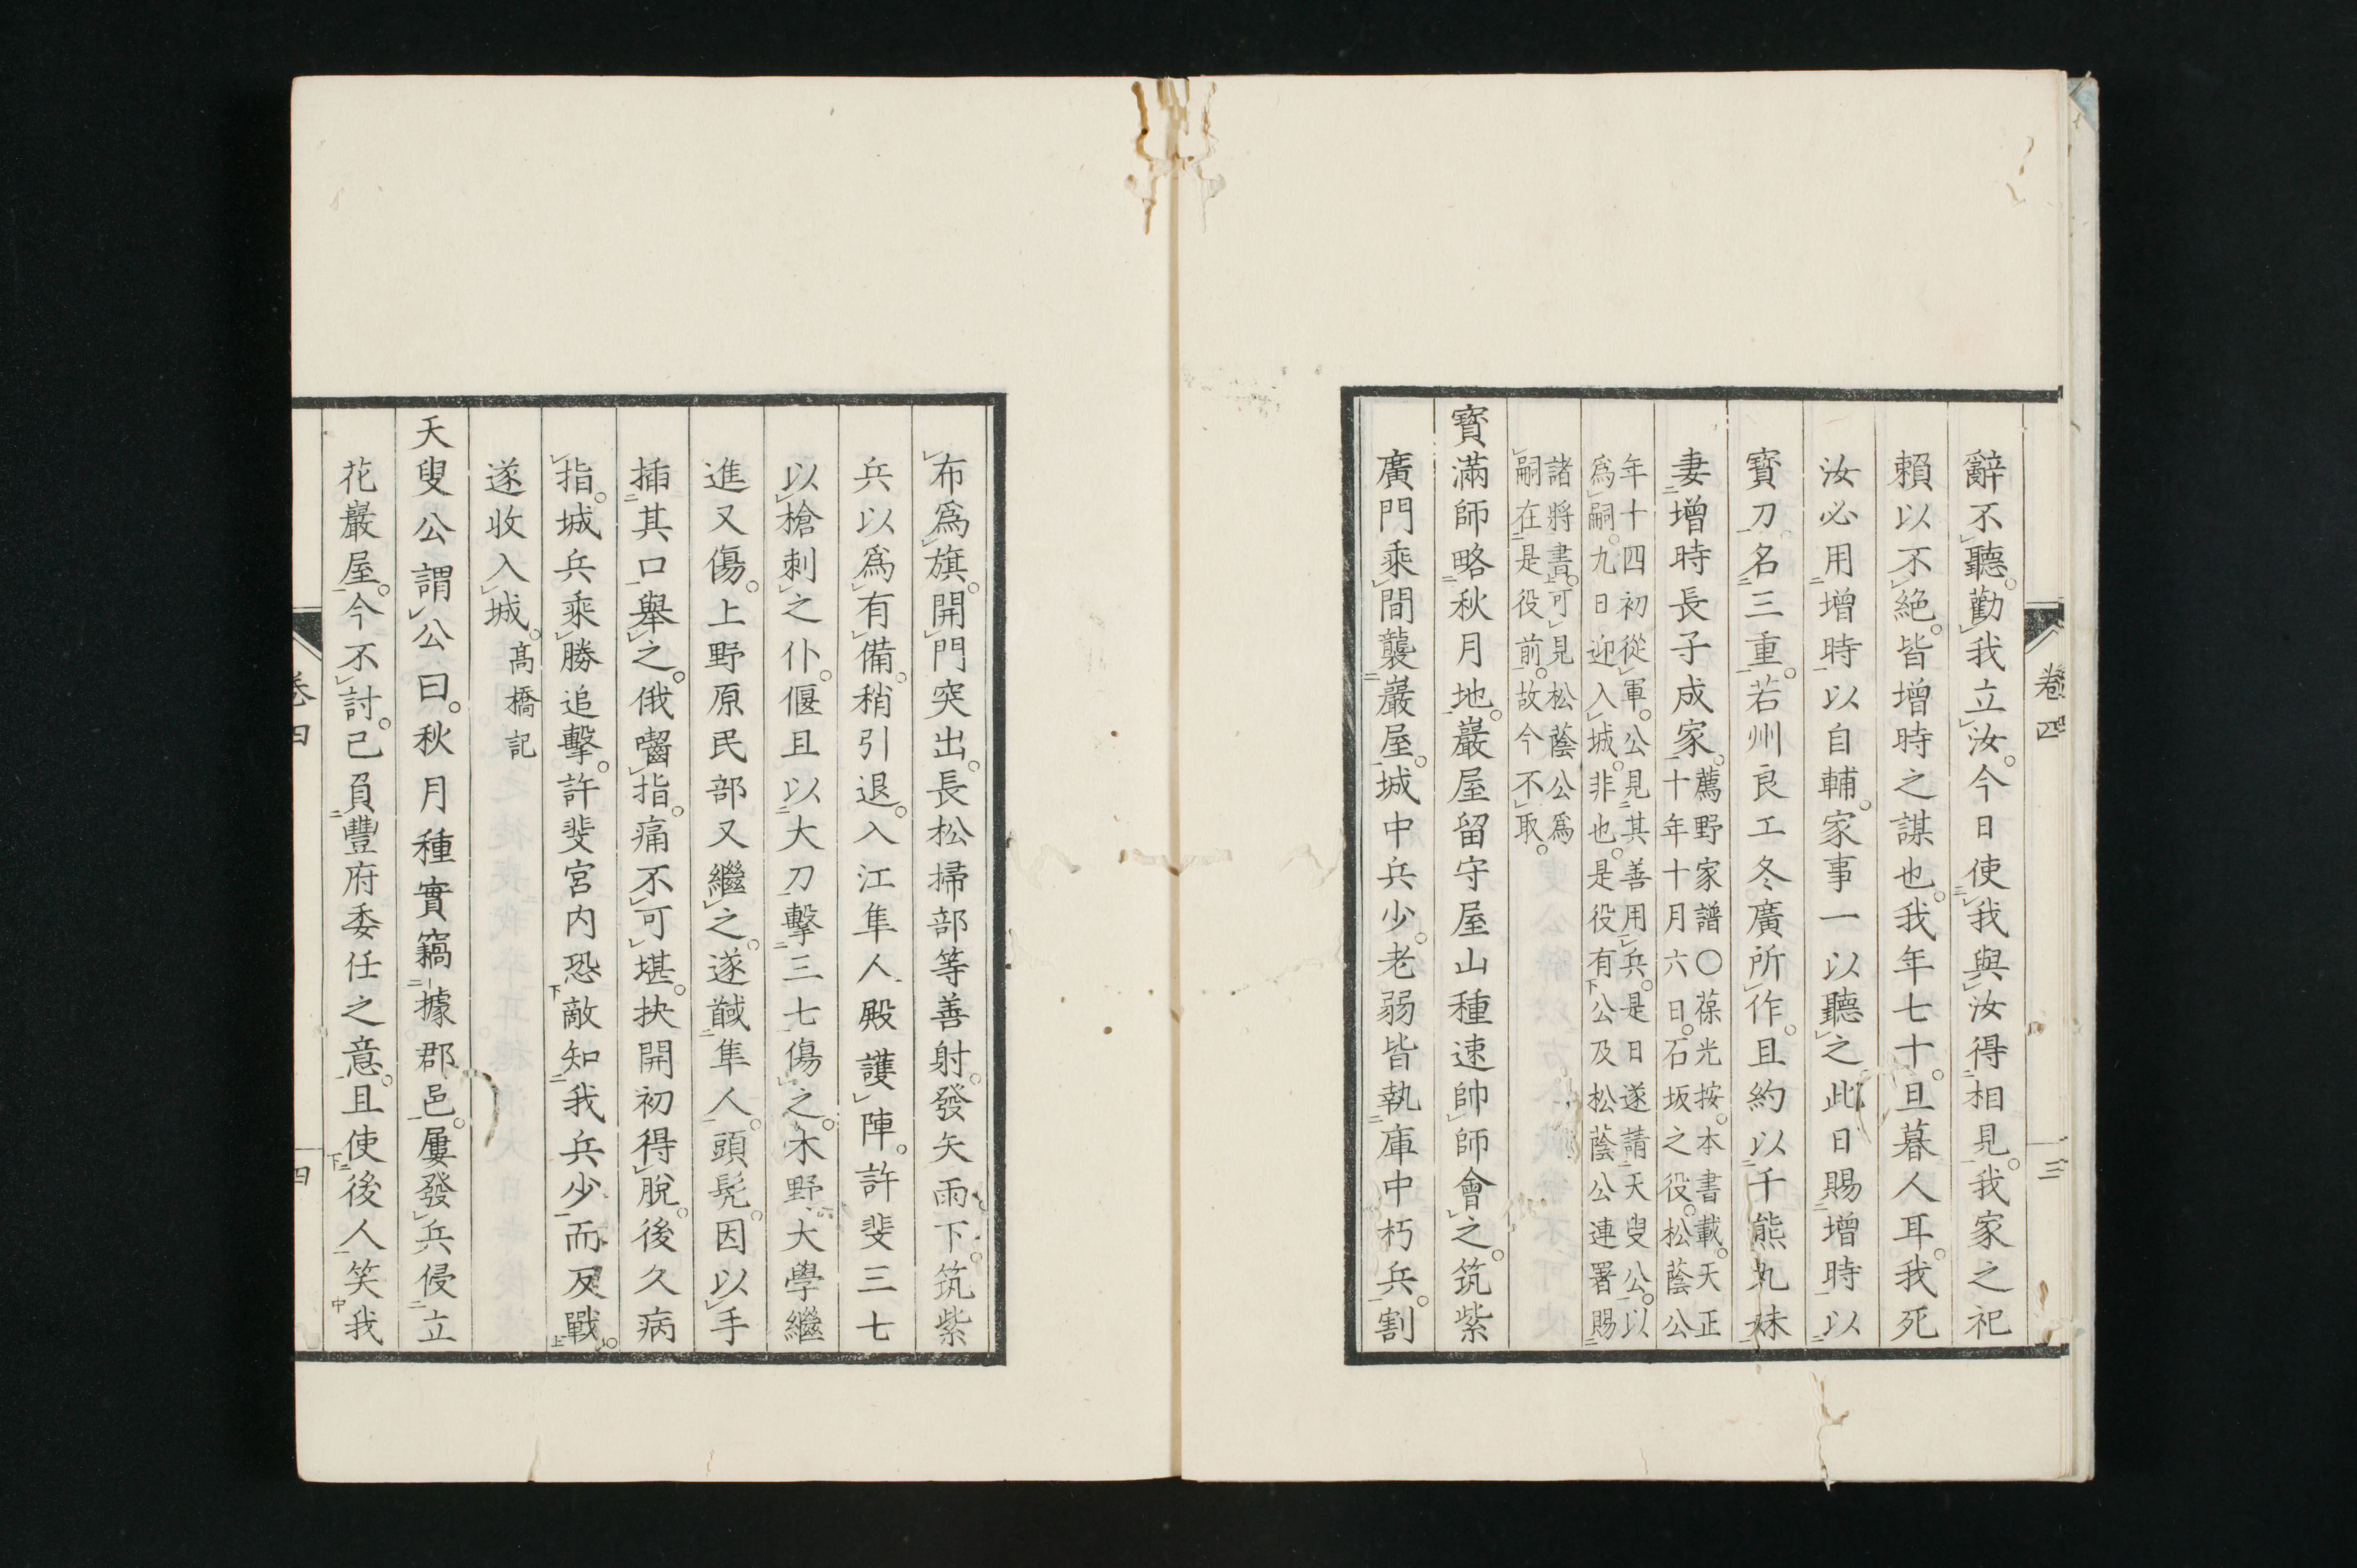 卷四
三
辭不聽。勸我立汝。今日使我與汝得相見。我家之祀
賴以不絶。皆增時之謀也。我年七十。旦暮人耳。我死
汝必用增時以自輔。家事一以聽之。此日賜增時以
寳刀名三重。若州良工冬廣所作。且約以千熊丸妹
妻增時長子成家。薦野家譜〇葆光按。本書載。天正
十年十月六日。石坂之役。松蔭公
年十四初從軍。公見其善用兵。是日遂請天叟公。以
爲嗣。九日迎入城。非也。是役有公及松蔭公連署賜
諸將書。可見松蔭公爲
嗣在是役前。故今不取。
寳滿師略秋月地。巖屋留守屋山種速帥師會之。筑紫
廣門乘間襲巖屋。城中兵少。老弱皆執庫中朽兵。割
布爲旗。開門突出。長松掃部等善射。發矢雨下。筑紫
兵以爲有備。稍引退。入江隼人殿護陣。許斐三七
以槍刺之仆。偃且以大刀擊三七傷之。木野大學繼
進又傷。上野原民部又繼之。遂馘隼人。頭髠。因以手
插其口舉之。俄嚙指。痛不可堪。抉開初得脫。後久病
指。城兵乘勝追擊。許斐宮内恐敵知我兵少而反戰。
遂收入城。髙橋記
天叟公謂公曰。秋月種實竊據郡邑。屢發兵侵立
花巖屋。今不討。已負豐府委任之意。且使後人笑我
卷四
四